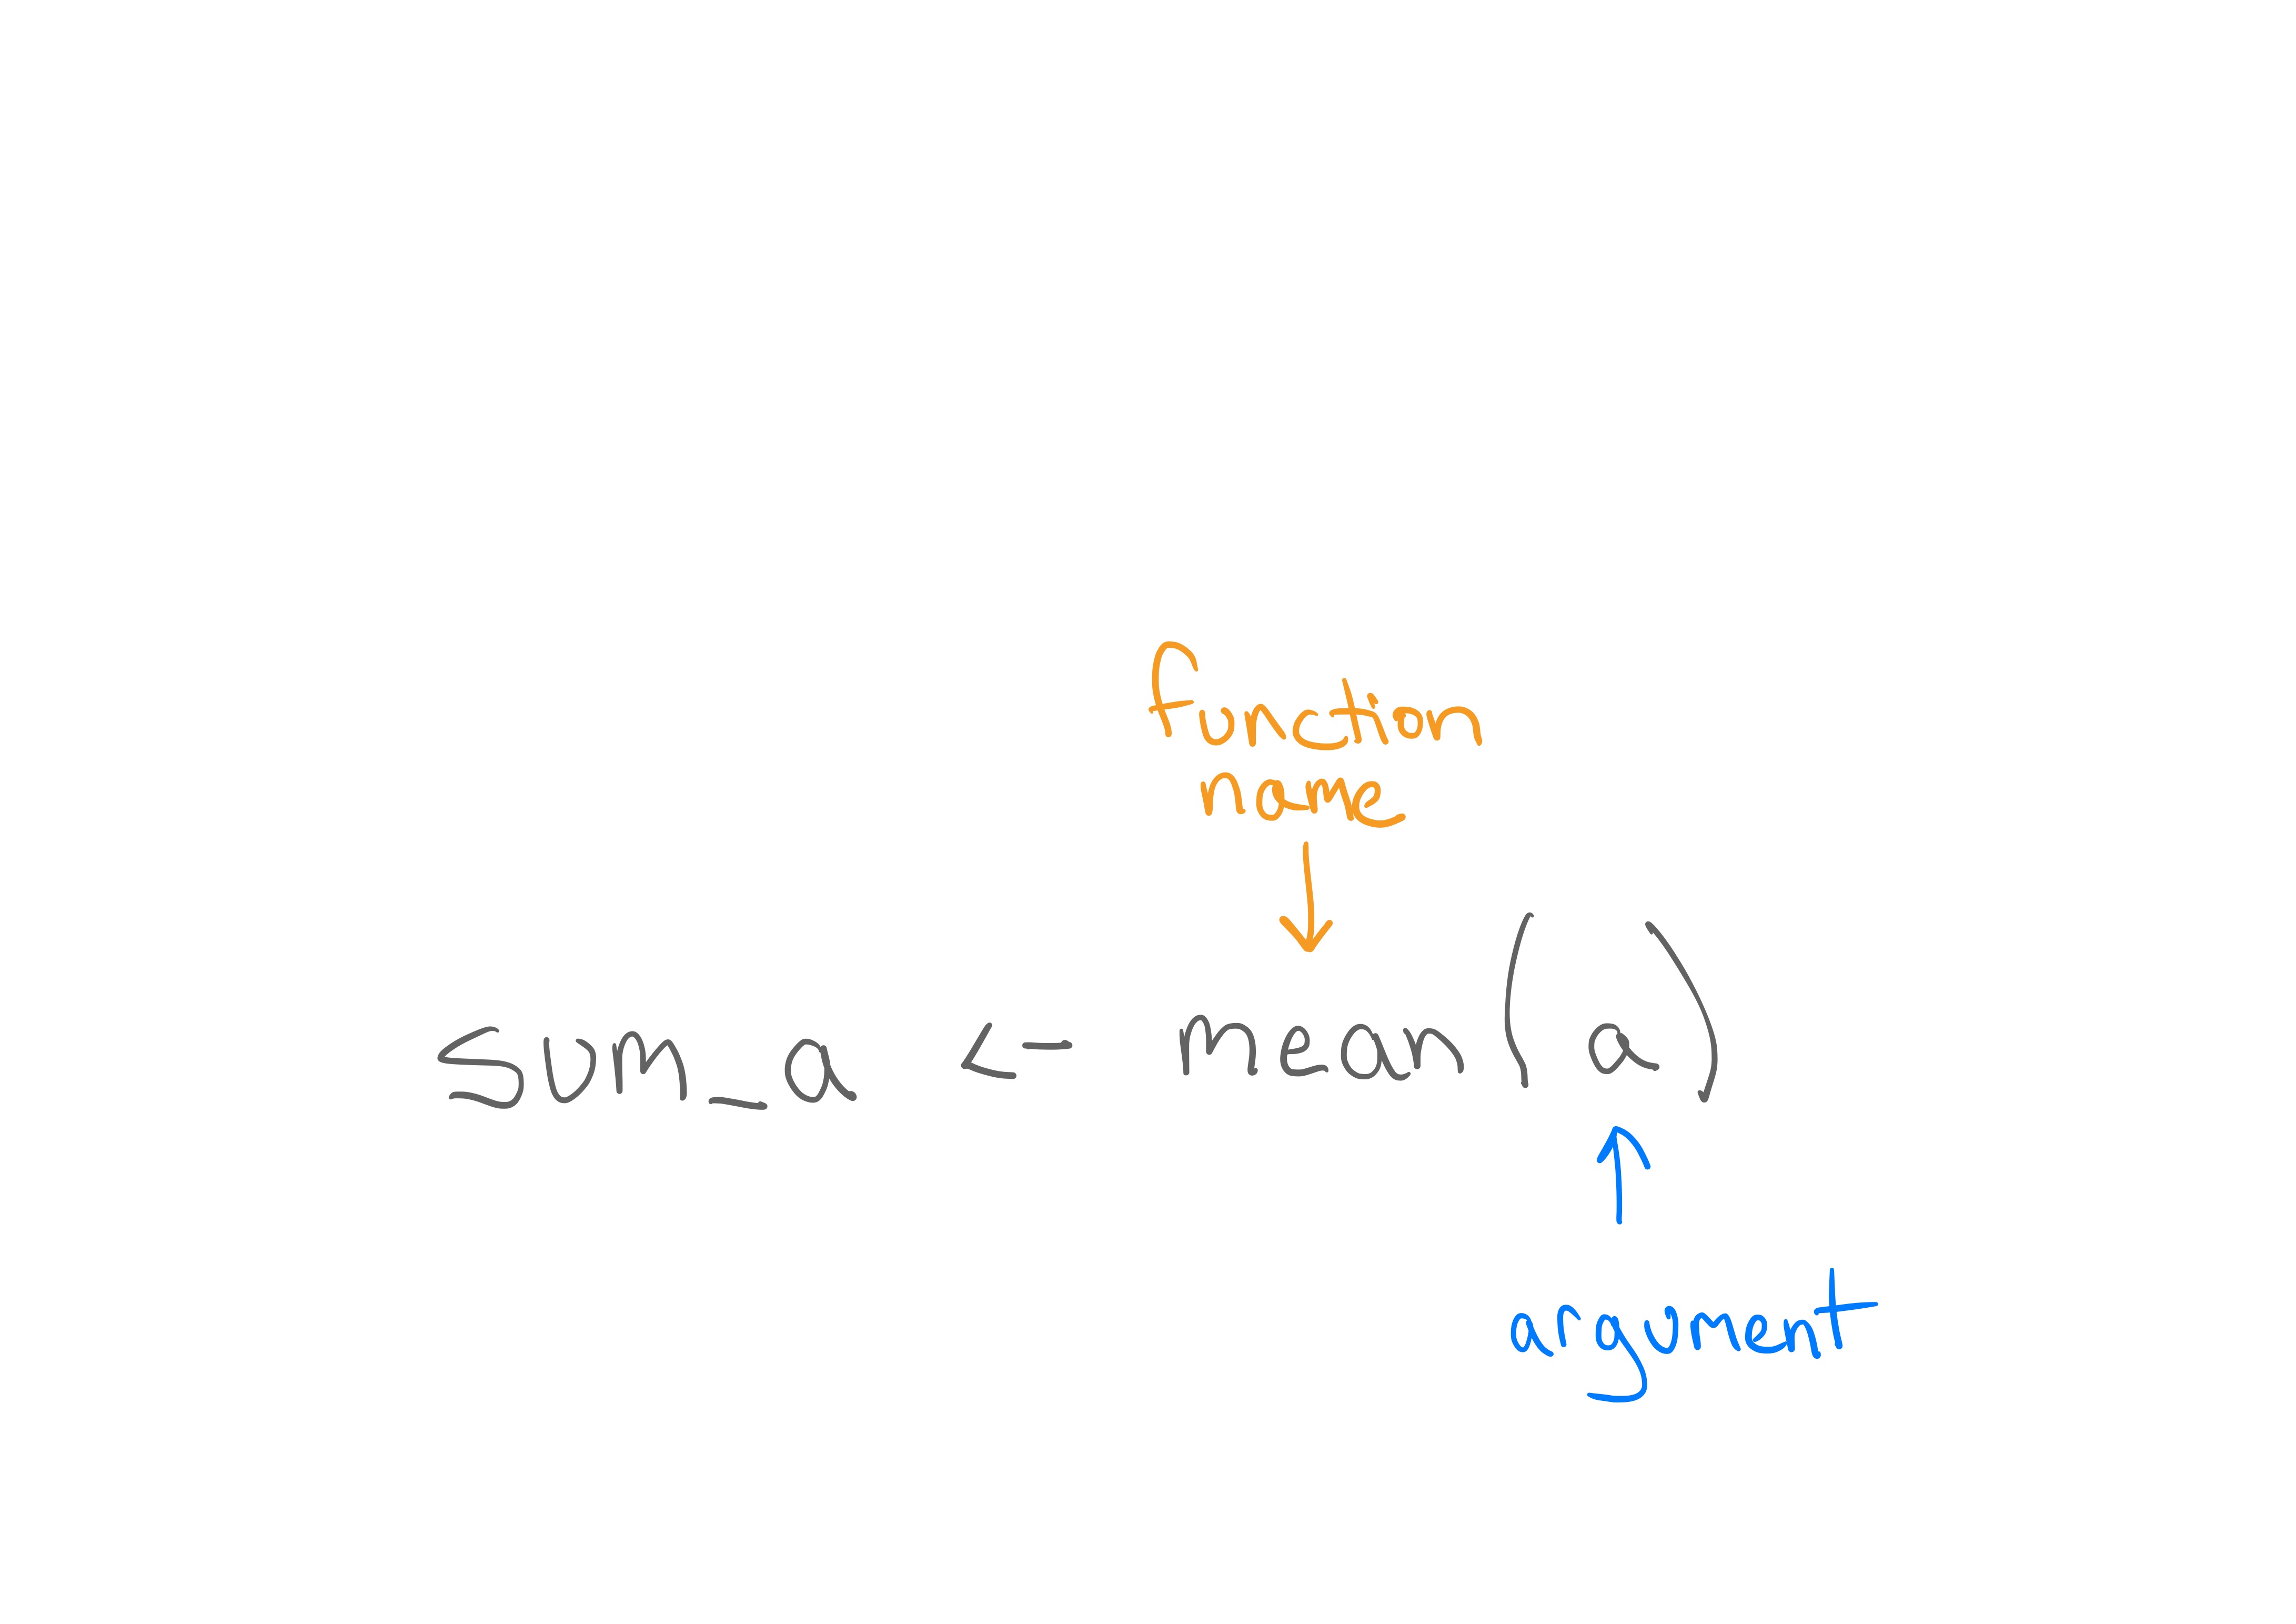 function
name
sum_a <- mean(a)
argument